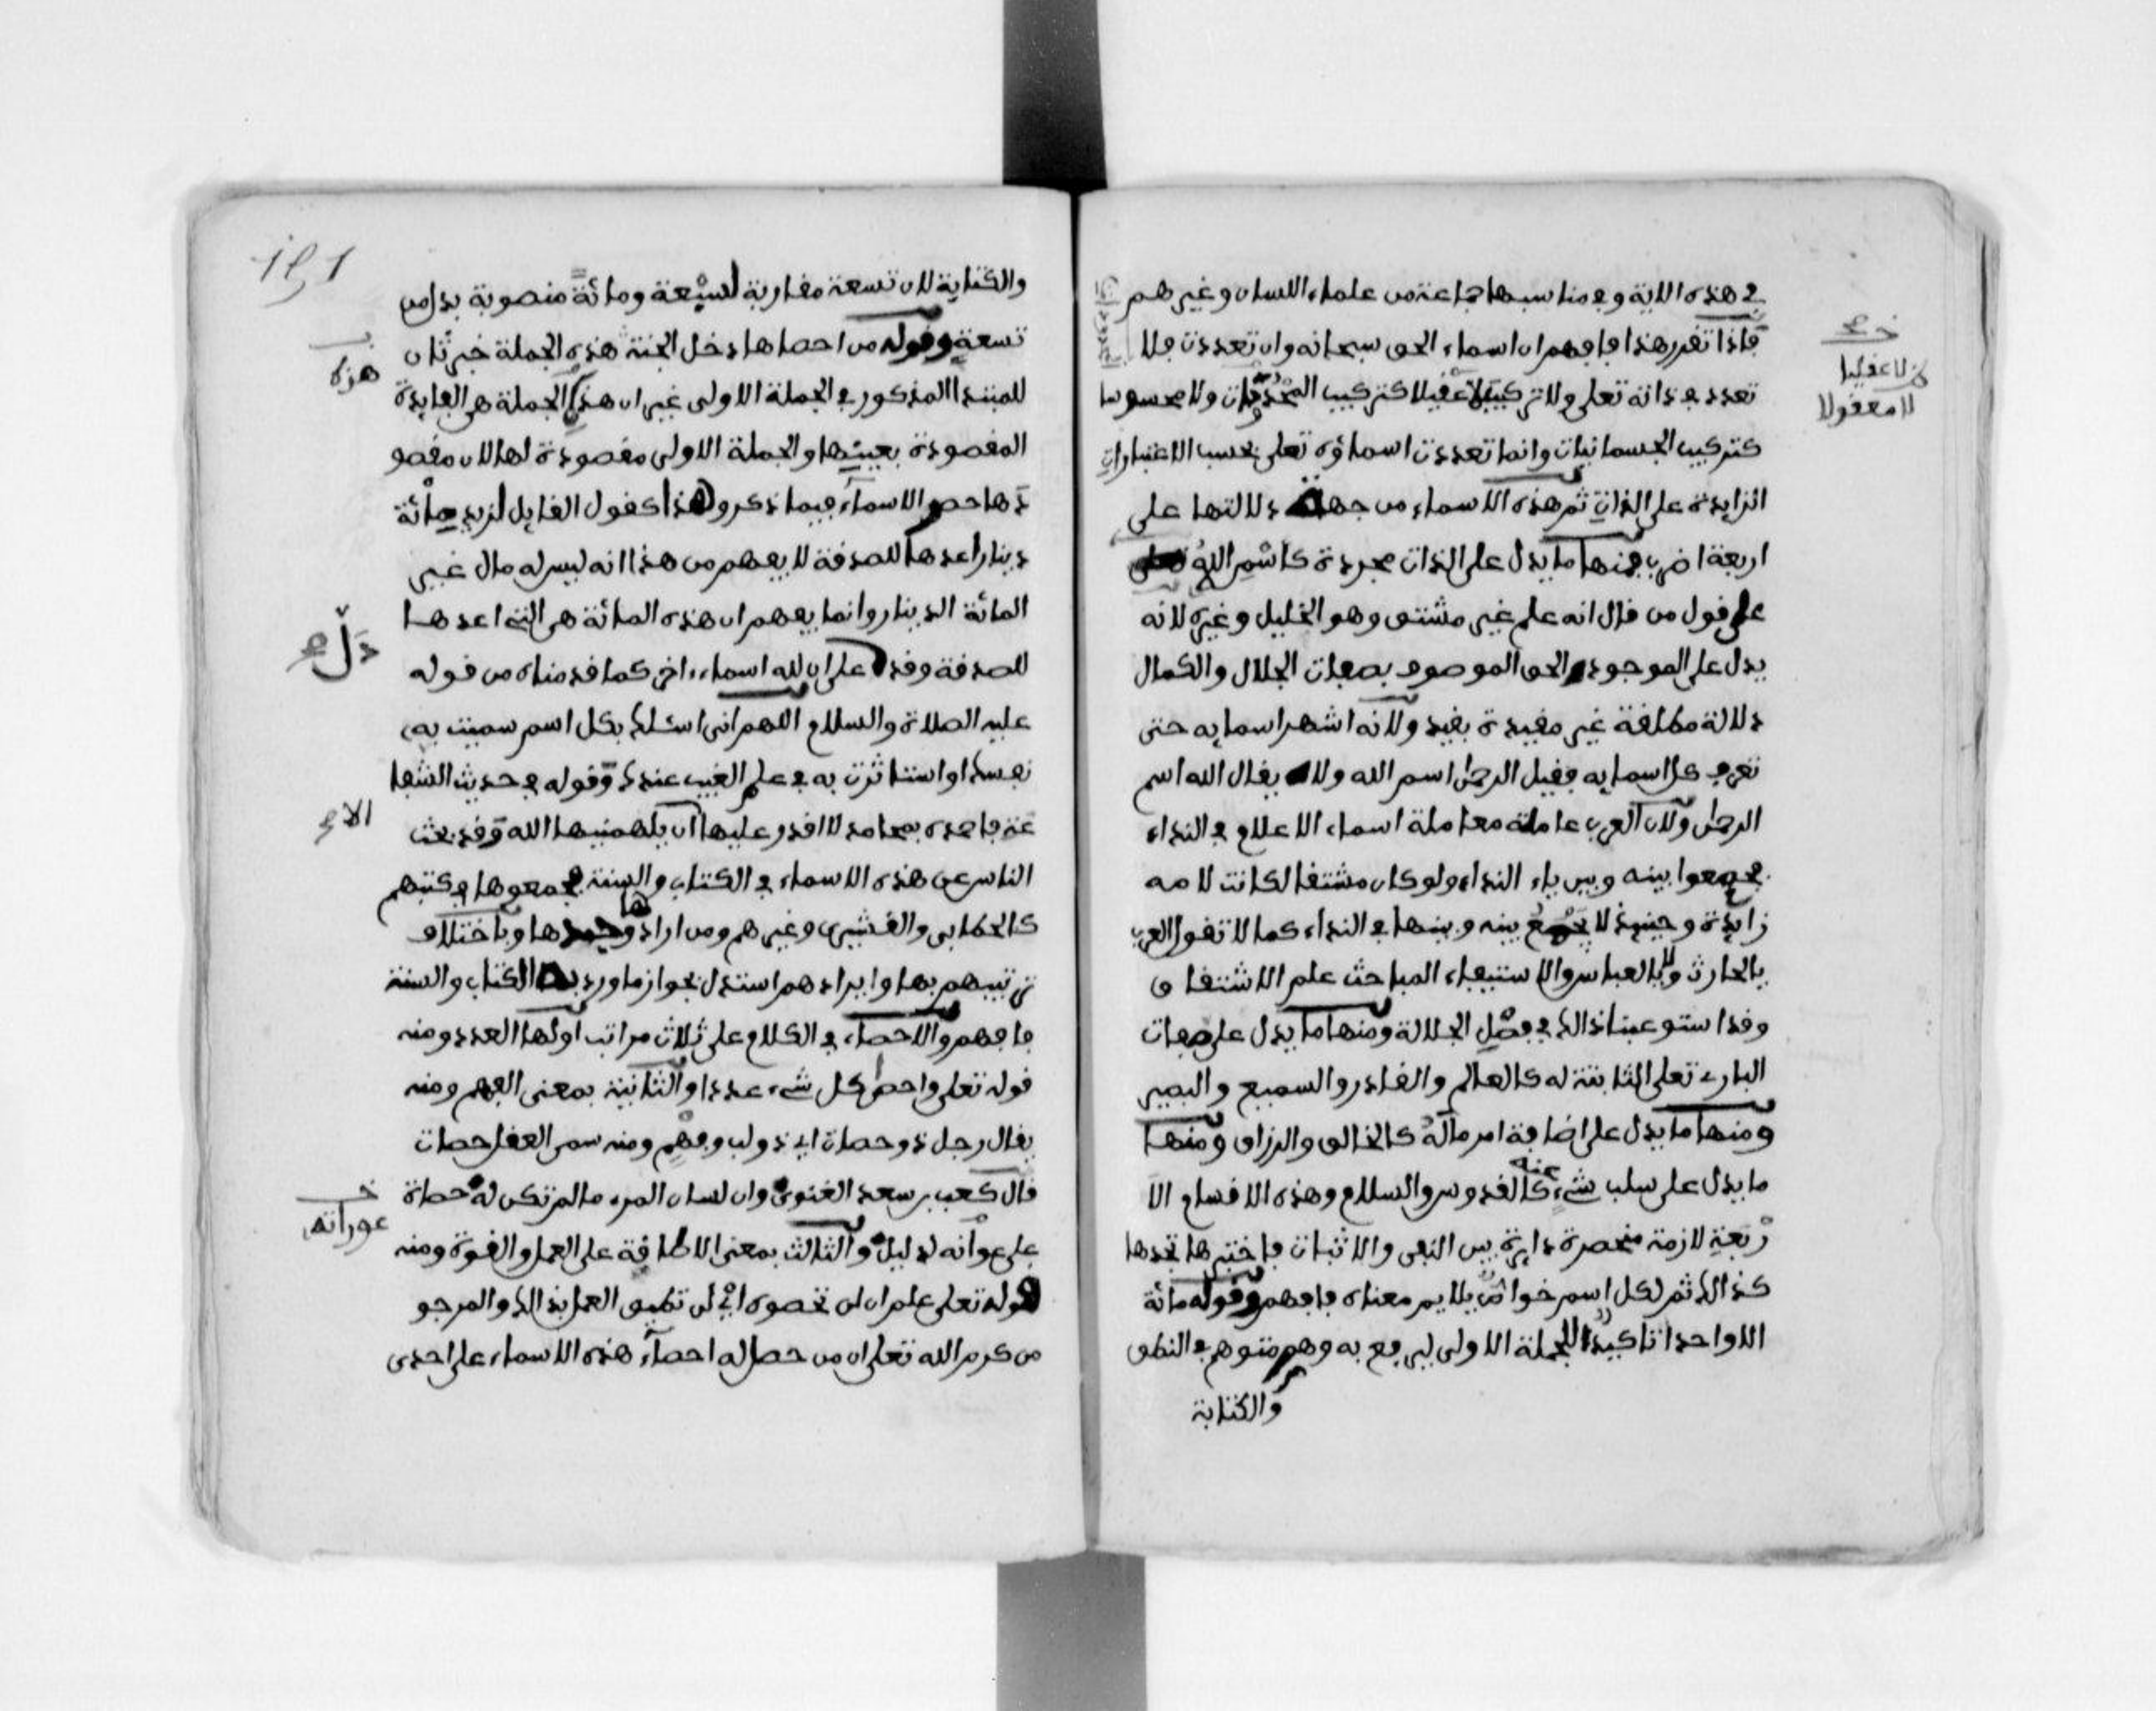 في هذه الاية وفي مناسبها جماعة من علماء اللسان وغيرهم
فإذا تقرر هذا فافهم ان اسماء الحق سبحانه وان تعددت فلا
تعدد في ذاته تعلى ولا تركيبا لا عقليا كتركيب ولا محسوسا
كتركيب الجسمانيات وانما تعددت اسماؤه تعلى بحسب الاعتبارات
الزايدة على الذات ثم هذه الاسماء من جهة دلالتها على
اربعة اضرب فمنها ما يدل على الذات مجردة كاسم الله تعلى
على قول من قال انه علم غير مشتق وهو الخليل وغيره لانه
يدل على الموجود الحق الموصوف بصفات الجلال والكمال
دلالة مطلقة غير مقيدة بقيد ولانه اشهر اسمايه حتى
تعرف كل اسمايه فقيل الرحمن اسم الله ولا يقال الله اسم
الرحمن ولان العرب عاملته معاملة اسماء الاعلام في النداء
فجمعوا بينه وبين ياء النداء ولو كان مشتقا لكانت لامه
زايدة وحينيذ لا يجمع بينه وبينها في النداء كما لا تقول العرب
يالحارث ولا يالعباس والاستيفاء المباحث علم الاشتقاق
وقد استوعبنا ذالك في فصل الجلالة ومنها ما يدل على صفات
البارئ تعلى الثابتة له كالعالم والقادر والسميع والبصير
ومنها ما يدل على اضافة امر ما له كالخالق والرزاق ومنها
ما يدل على سلب شيء عنه كالقدوس والسلام وهذه الاقسام الا
ربعة لازمة منحصرة دايرة بين النفي والاثبات فاختبرها تجدها
كذالك ثم لكل اسم خواص يلايم معناه فافهم وقوله مائة
الا واحدا تاكيدا للجملة الاولى ليرفع به وهم متوهم في النطق
والكتابة
لا عقليا
لا معقولا
والكتابة لان تسعة مقاربة لسبعة ومائة منصوبة بدل من
تسعة وقوله من احصاها دخل الجنة هذه الجملة خبر ثان
للمبتدا المذكور في الجملة الاولى غير ان هذه الجملة هي الفايدة
المقصودة بعينها والجملة الاولى مقصودة لها لان مقصو
دها حصر الاسماء فيما ذكر وهذا كقول القايل لزيد مائة
دينار اعدها للصدقة لا يفهم من هذا انه ليس له مال غير
المائة الدينار وانما يفهم ان هذه المائة هي التي اعدها
للصدقة وقد على ان لله اسماء اخر كما قدمناه من قوله
عليه الصلاة والسلام اللهم انى اسئلك بكل اسم سميت به
نفسك او استاثرت به في علم الغيب عندك وقوله في حديث الشفا
عة فاحمده بمحامد لا اقدر عليها الان يلهمنيها الله وقد بحث
الناس عن هذه الاسماء في الكتاب والسنة فجمعوها في كتبهم
كالخطابي والقشيري وغيرهم ومن اراد وجدها وباختلاف
ترتيبهم بها وايرادهم استدل بجواز ما ورد به الكتاب والسنة
فافهم والاحصاء في الكلام على ثلاث مراتب اولها العدد ومنه
قوله تعلى واحصى كل شيء عددا والثانية بمعنى الفهم ومنه
يقال رجل ذو حصاة اي ذو لب وفهم ومنه سمي العقل حصات
قال كعب بن سعد الغنوي وان لسان المرء ما لم تكن له حصاة
على عوراته لدليل والثالث بمعنى الاطاقة على العمل والقوة ومنه
قوله تعلى علم ان لن تحصوه اي لن تطيق العمل بذالك والمرجو
من كرم الله تعلى ان من حصل له احصاء هذه الاسماء على احدى
هذه
دل
الا
عوراته